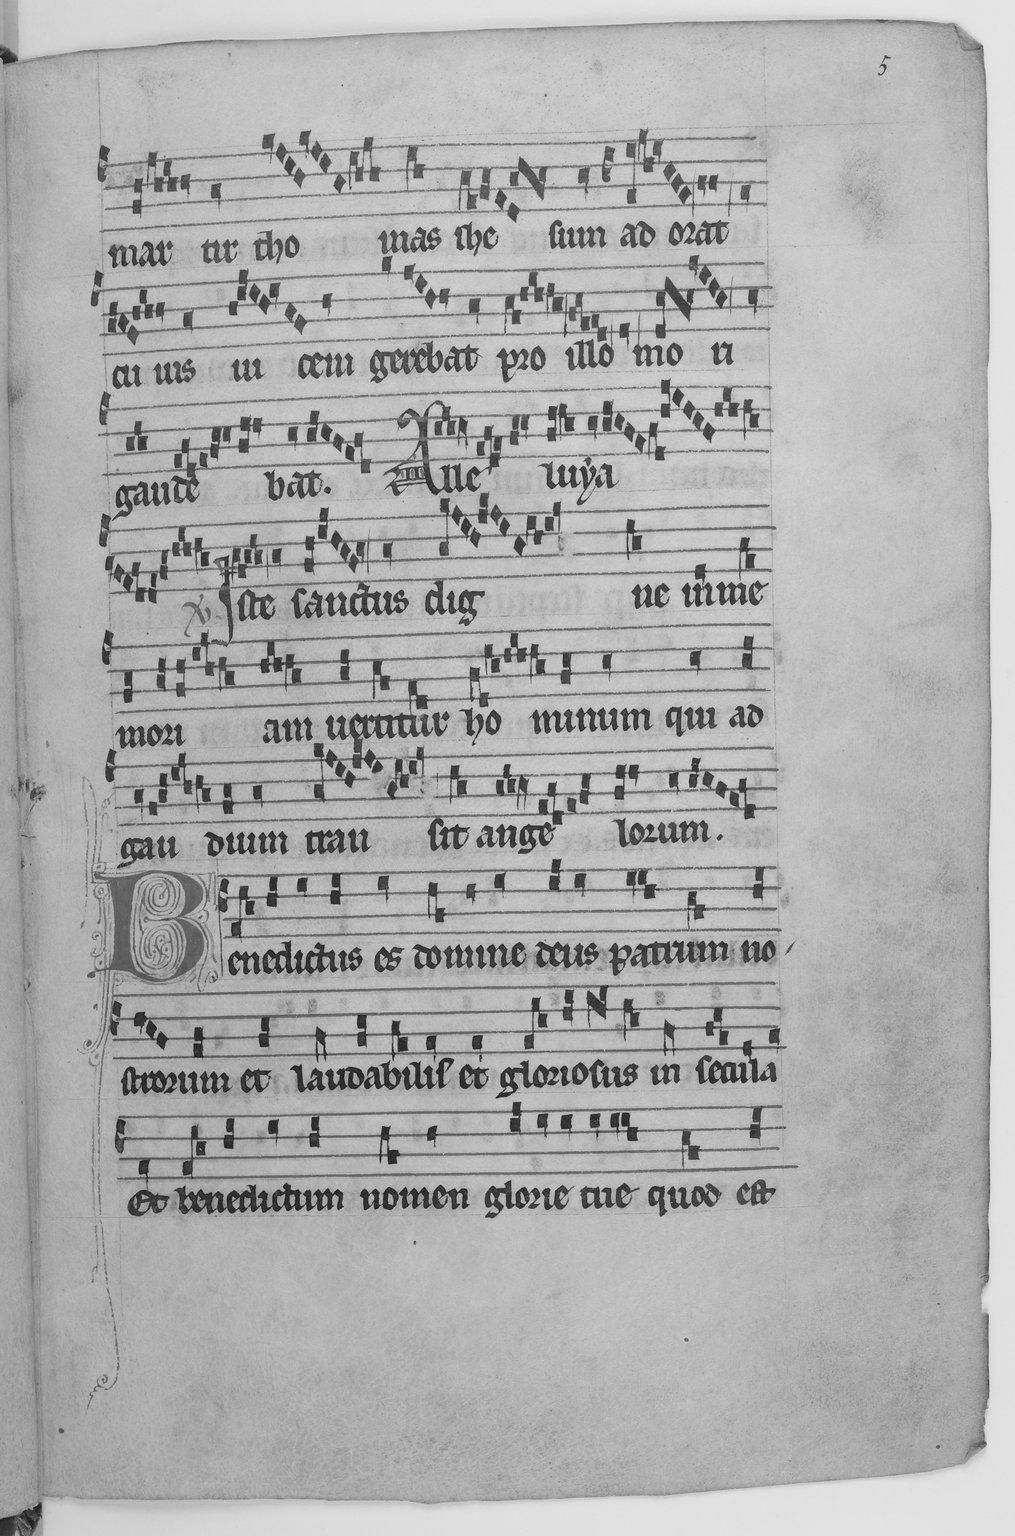 5
mar tir tho mas ihe sum ad orat
cu ius iu cem gerebat pro illo mo ri
gaude bat. Alle luẏa
℣ Iste sanctus dig ne in me
mori am uertitur ho minum qui ad
gau dium tran sit ange lorum.
Benedictus es domine deus patrum no
strorum et laudabilis et gloriosus in secula
Et benedictum nomen glorie tue quod est